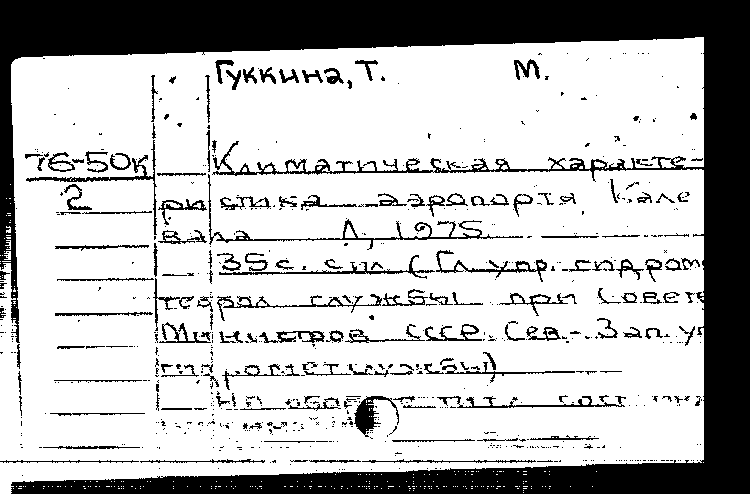 Гуккина, Т. М.
76-50к
2
Климатическая характе-
ристика аэропорта Кале
вала Л, 1975
35с. с ил (Гл упр. гидром
теорол службы при Совете
Министров СССР. Сев.-Зап. уп
гидрометслужбы)
На об тит л сост